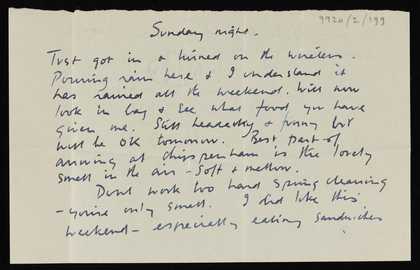 9920/2/199
Sunday night.
Just got in & turned on the wireless.
Pouring rain here & I understand it
has rained all the weekend. Will now
look in bag & see what food you have
given me. Still headachy & funny but
will be OK tomorrow. Best part of
arriving at Chippenham is the lovely
smell in the air - soft & mellow.
Dont work too hard spring cleaning
- you're only small. I did like this
weekend - especially eating sandwiches